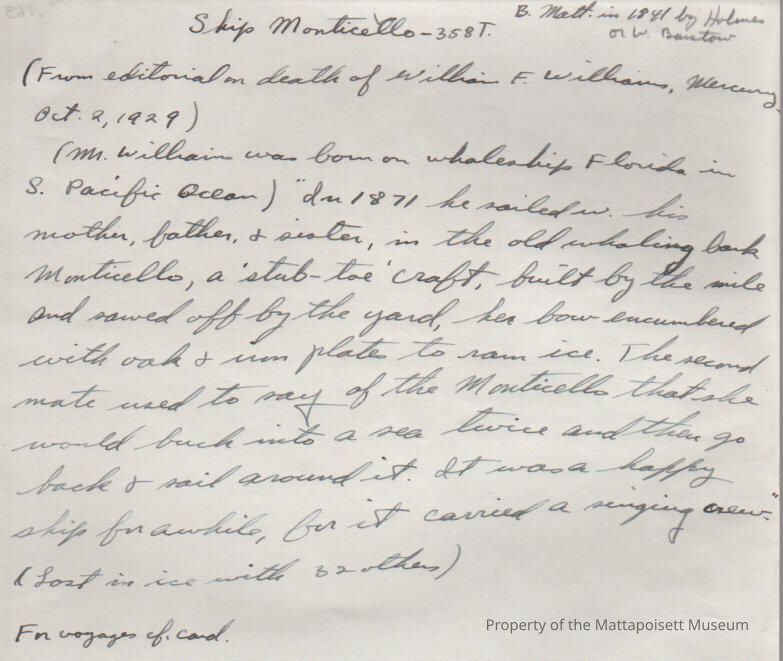 Ship Monticello - 358 T.
B. Matt. in 1841 by Holmes
or W. Barstow
(From editorial on death of William F. Williams, Mercury,
Oct. 2, 1929)
(Mr. Williams was born on whaleship Florida in
S. Pacific Ocean) "In 1871 he sailed w. his
mother, father, & sister, in the old whaling bark
Monticello, a 'stub-toe' craft, built by the mile
and sawed off by the yard, her bow encumbered
with oak & iron plates to ram ice. The second
mate used to say of the Monticello that she
would buck into a sea twice and then go
back & sail around it. It was a happy
ship for awhile, for it carried a singing crew."
(Lost in ice with 32 others)
For voyages cf. card.
Property of the Mattapoisett Museum